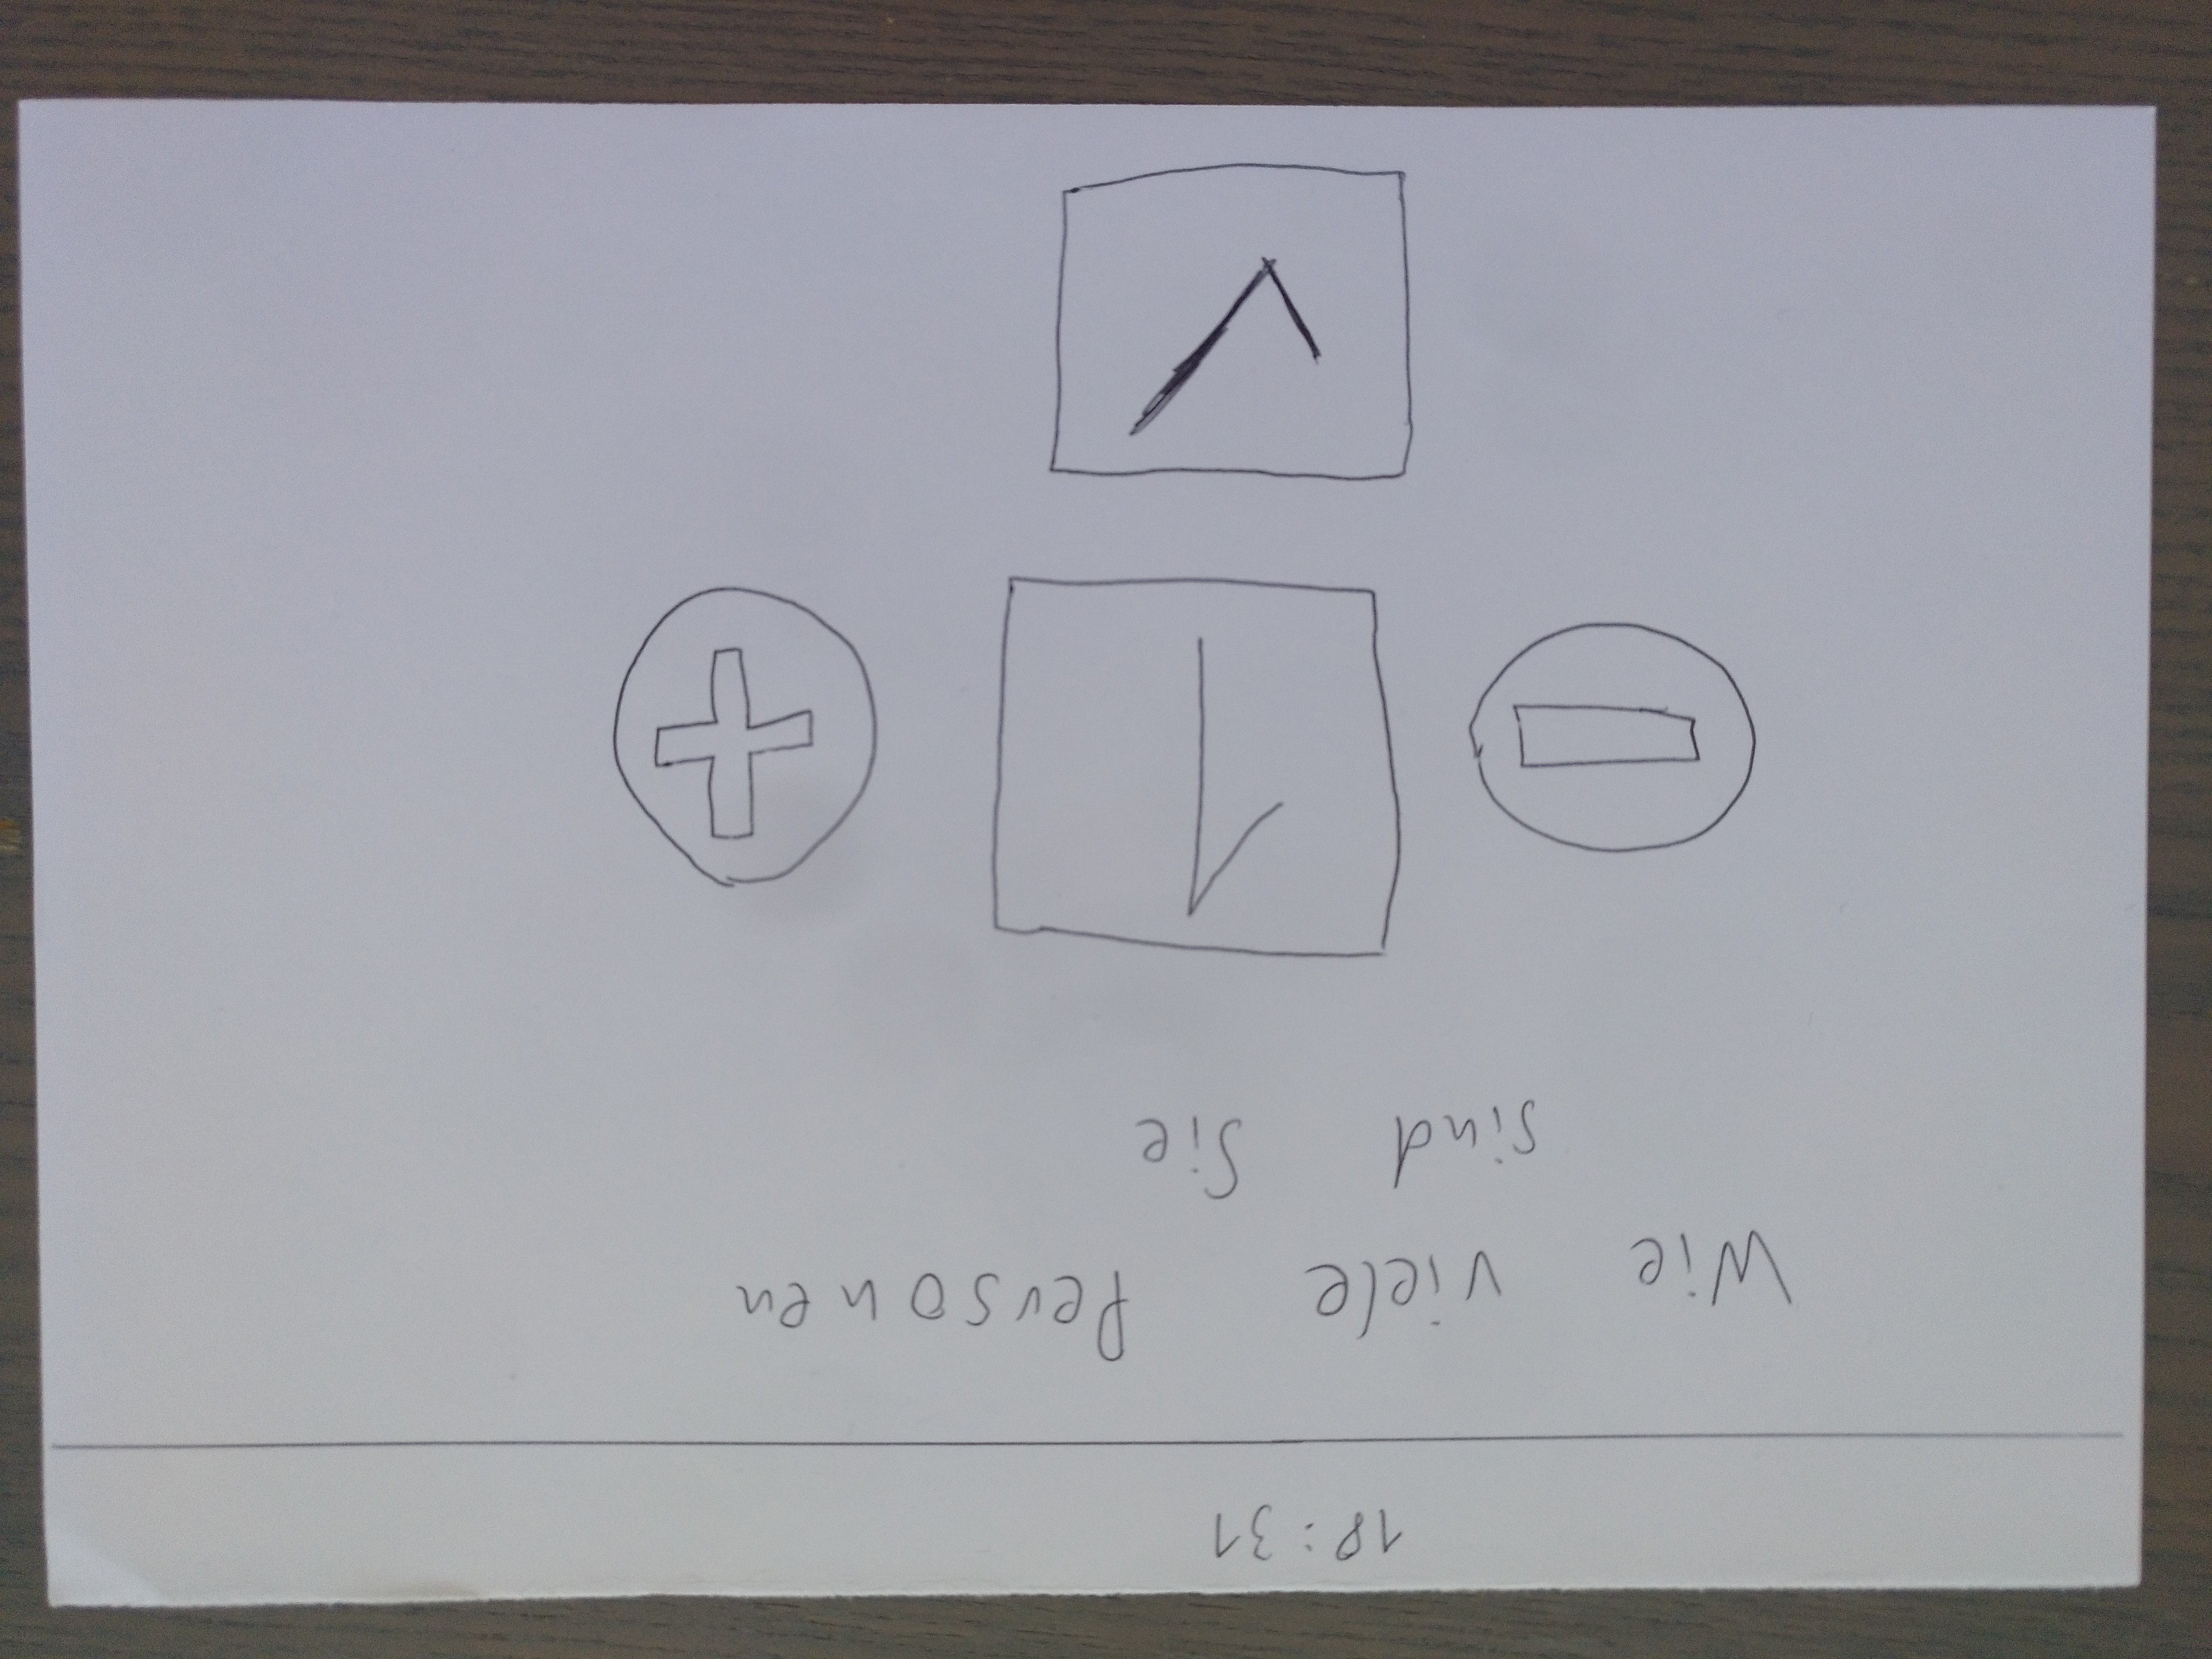 18:31
Wie viele Personen
sind Sie
1